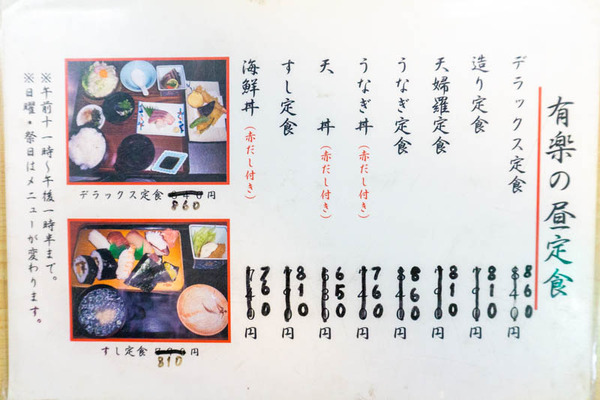 有楽の昼定食
デラックス定食 860円
造り定食 810円
天婦羅定食 810円
うなぎ定食 860円
うなぎ丼(赤だし付き) 760円
天 丼(赤だし付き) 650円
すし定食 810円
海鮮丼(赤だし付き) 760円
デラックス定食 円
860
すし定食 円
810
※午前十一時〜午後一時半まで。
※日曜・祭日はメニューが変わります。